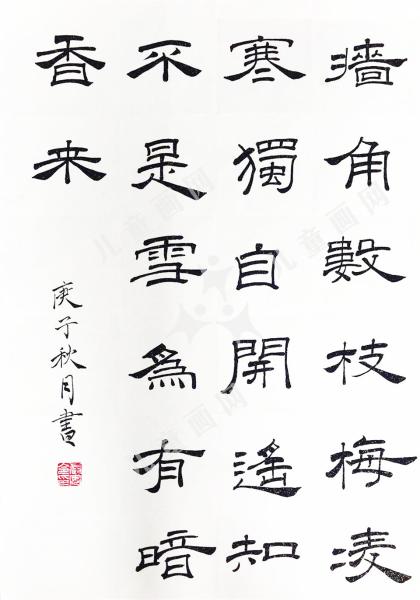 牆角數枝梅凌
寒獨自開遙知
不是雪為有暗
香来
庚子秋月書
儿童画网